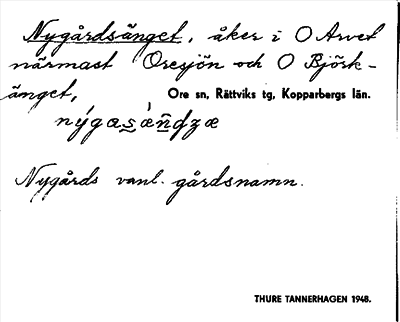 Nygårdsänget, åker i O Arvet
närmast Oresjön och O Björk-
änget, Ore sn, Rättviks tg, Kopparbergs län.
nýgæs̲ǽn̲dʒæ
Nygårds vanl. gårdsnamn.
THURE TANNERHAGEN 1948.